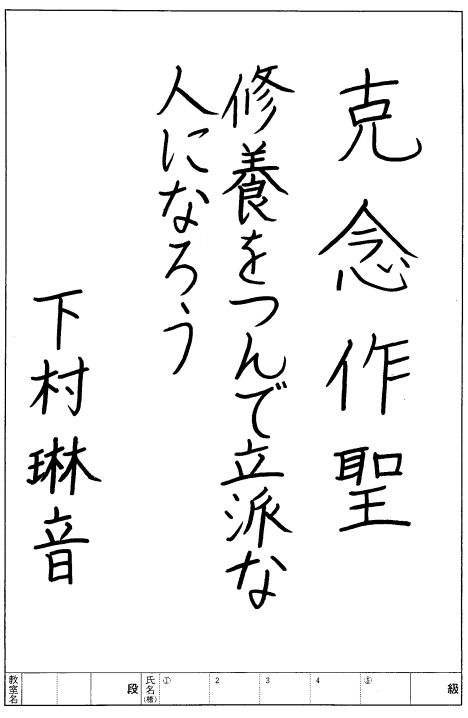 克念作聖
修養をつんで立派な
人になろう
下村琳音
教室名 段 氏名(楷) ① 2 3 4 ⑤ 級